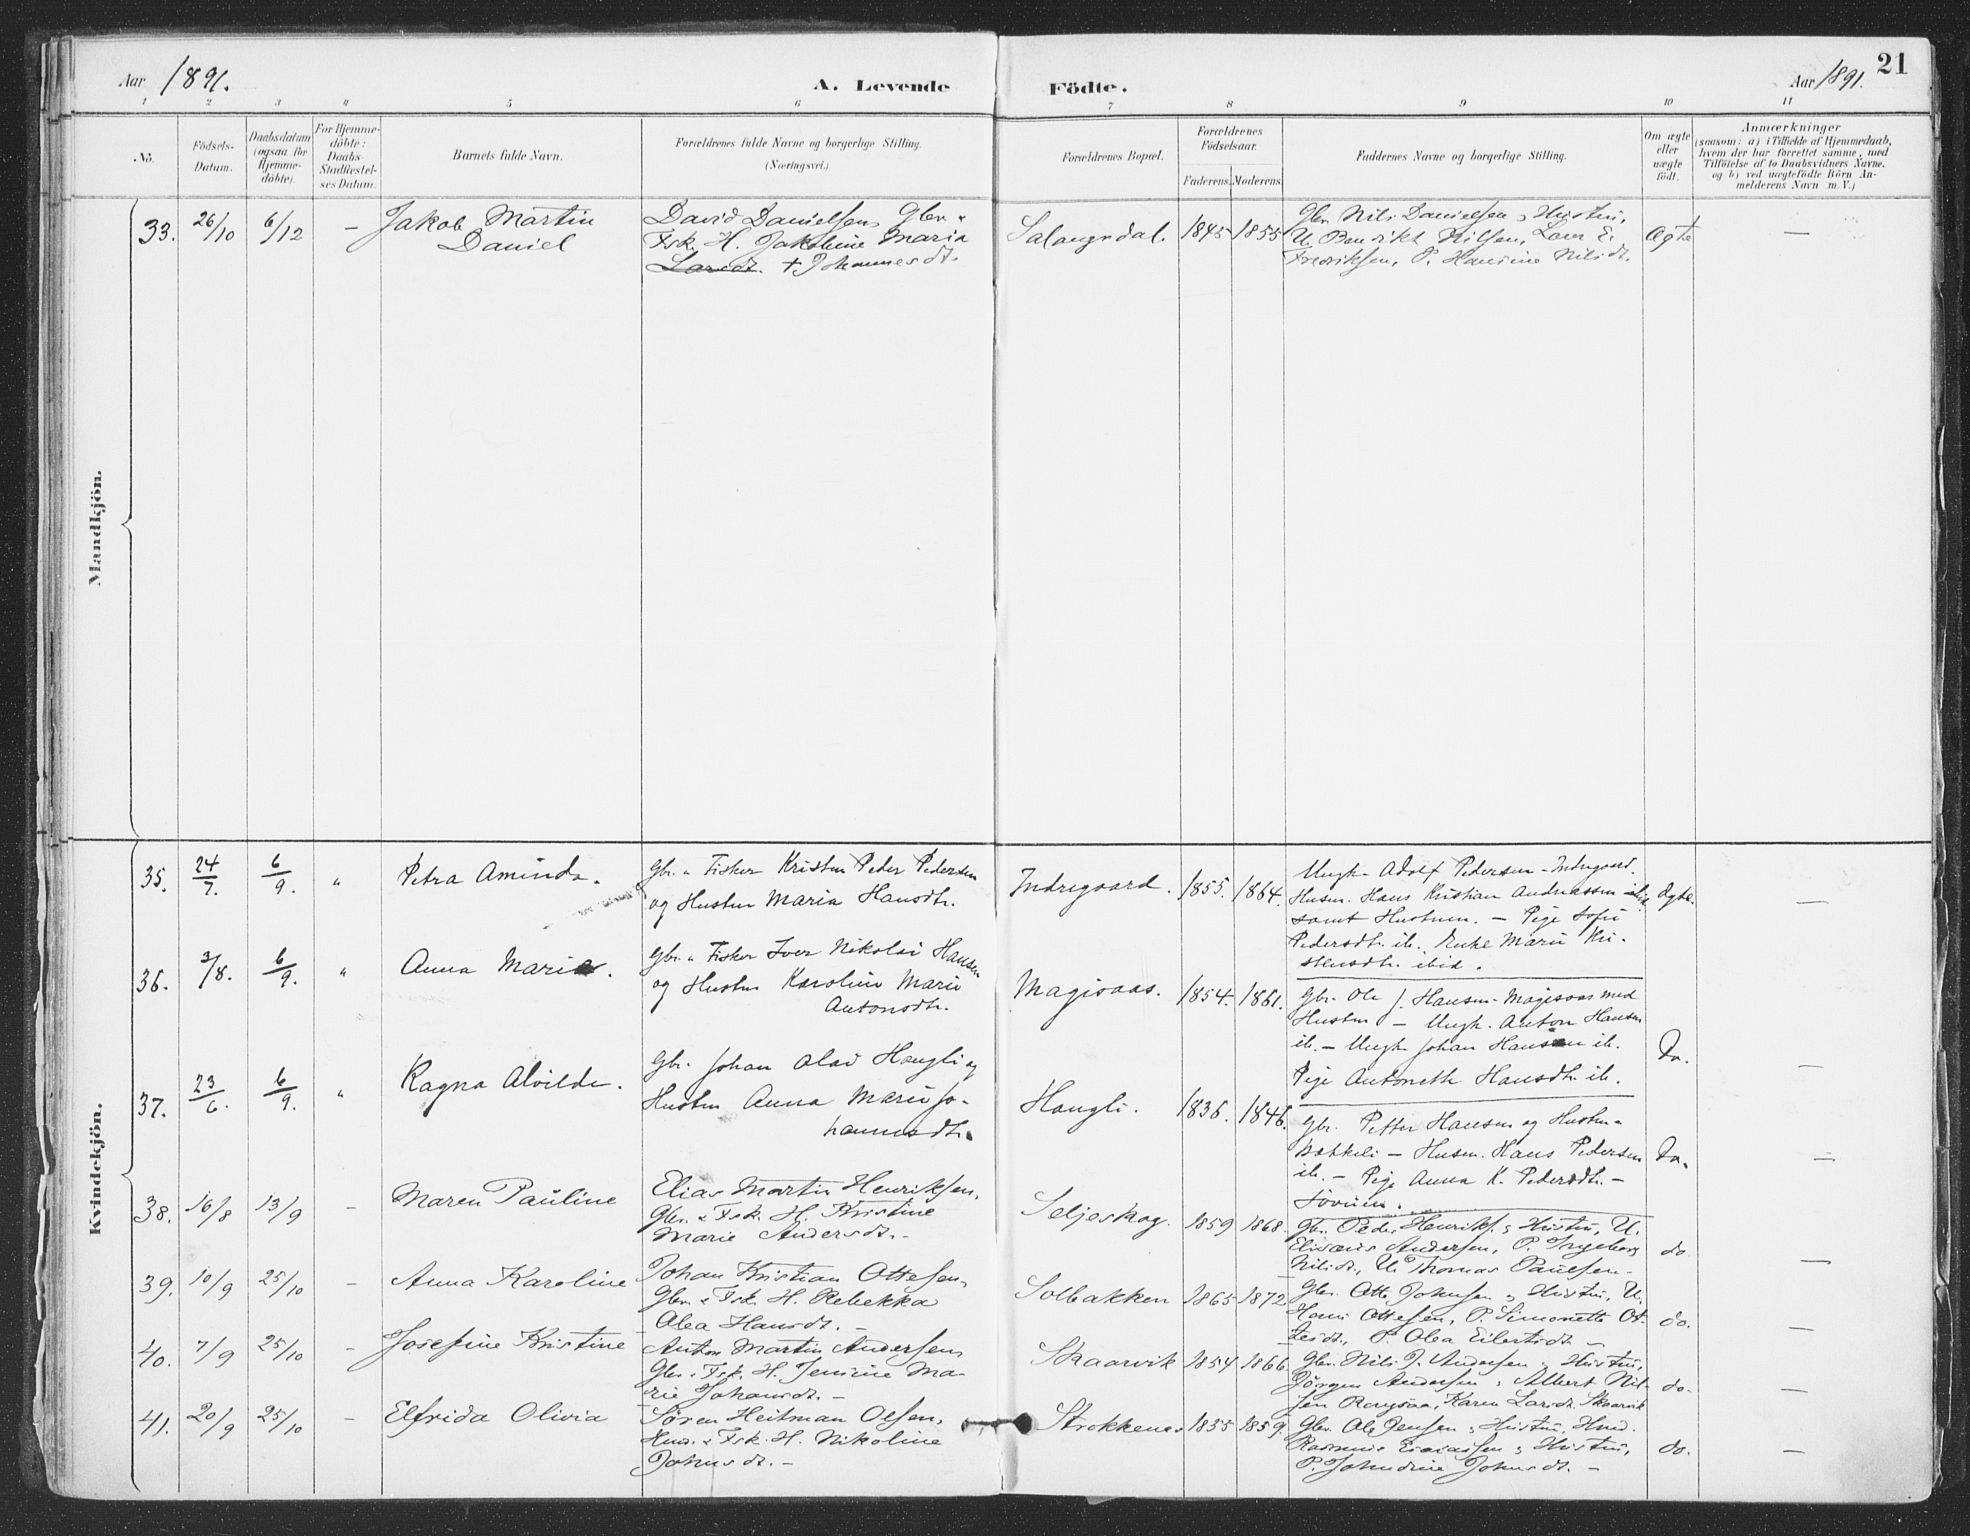 Aar 1891.
A. Levende
Födte.
Aar 1891.
21
1 2 3 4 5 6 7 8 9 10 11
No.
Födsels-
Datum.
Daabsdatum
(ogsaa for
Hjemme-
döbte).
For Hjemme-
döbte:
Daabs-
Stadfæstel-
ses Datum.
Barnets fulde Navn.
Forældrenes fulde Navne og borgerlige Stilling.
(Næringsvei.)
Forældrenes Bopæl.
Forældrenes
Födselsaar.
Faderens.
Moderens.
Faddernes Navne og borgerlige Stilling.
Om ægte
eller
uægte
födt.
Anmærkninger
(saasom: a) i Tilfælde af Hjemmedaab,
hvem der har forrettet samme, med
Tilföielse af to Daabsvidners Navne.
og b) ved uægtefödte Börn An-
melderens Navn m. V.)
Mandkjön.
33. 26/10 6/12 –
Jakob Martin
Daniel
David Danielsen, Gbr. &
Fsk. H. Jakobine Maria
Larsdt. + Johannesdt.
Salangsdal. 1845 1855
Gbr. Nils Danielsen & Hustru,
U. Bendikt Nilsen, Lars E.
Fredriksen, P. Hansine Nilsdt.
Ægte –
Kvindekjön.
35. 24/7. 6/9. "
Petra Aminda.
Gbr. & Fisker Kristen Peder Pedersen
og Hustru Maria Hansdtr.
Indregaard. 1855. 1864.
Ungk. Adolf Pedersen - Indregaard.
Husm. Hans Kristian Andreassen ibid.
samt Hustruen. – Pige Sofie
Pedersdtr. ib. Enke Marie Kri-
stensdtr. ibid.
Ægte. –
36. 3/8. 6/9. "
Anna Marie.
Gbr. & Fisker Iver Nikolai Hansen
og Hustru Karoline Marie
Antonsdtr.
Magisaas. 1854. 1861.
Gbr. Ole J. Hansen - Magisaas med
Hustru – Ungk. Anton Hansen
ib. – Ungk. Johan Hansen ib.
Pige Antonette Hansdtr. ib.
Do. –
37. 23/6. 6/9. "
Ragna Alvilde.
Gbr. Johan Olai Haugli og
Hustru Anna Marie Jo-
hannesdtr.
Haugli. 1836. 1846.
Gbr. Petter Hansen og Hustru -
Bakkeli – Husm. Hans Pedersen
ib. – Pige Anna K. Pedersdtr. –
Do. –
38. 16/8 13/9 –
Maren Pauline
Elias Martin Henriksen,
Gbr. & Fsk. H. Kristine
Marie Andersdt. –
Seljeskog. 1859 1868.
Gbr. Peder Henriks. & Hustru, U.
Elisæus Andersen, P. Ingeborg
Nilsdt., U. Thomas Paulsen –
do. –
39. 10/9 25/10 –
Anna Karoline
Johan Kristian Ottesen,
Gbr. & Fsk. H. Rebekka
Olea Hansdt. –
Solbakken 1865 1872
Gbr. Otto Johnsen & Hustru, U.
Hans Ottesen, P. Simonette Ot-
tesdt., P. Olea Eilertsdt. –
do. –
40. 7/9 25/10 –
Josefine Kristine
Anton Martin Andersen,
Gbr. & Fsk. H. Jensine Ma-
rie Johansdt. –
Skaarvik 1854 1866.
Gbr. Nils J. Andersen & Hustru,
Jörgen Andersen, Albert Nil-
sen Rougsaa, Karen Larsdt. Skaarvik
do. –
41. 20/9 25/10 –
Elfrida Olivia
Sören Heitman Olsen,
Husm. & Fsk. H. Nikoline
Johnsdt. –
Strokkenes 1855 1859.
Gbr. Ole Jensen & Hustru, Husm.
Rasmus Esaiassen & Hustru,
P. Johndine Johnsdt. –
do. –